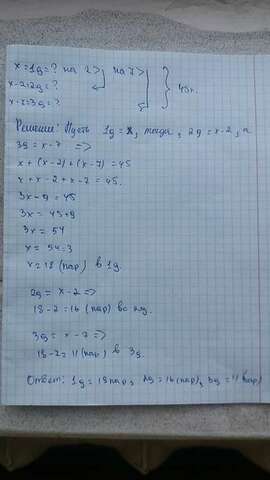 x=1д=? на 2> на 7> } 45п.
x-2=2д=?
x-7=3д=?
Решение: Пусть 1д = x, тогда, 2д = x-2, а
3д = x-7 =>
x+(x-2)+(x-7)=45
x+x-2+x-7=45.
3x-9=45
3x=45+9
3x=54
x=54:3
x=18 (пар) в 1д.
2д = x-2 =>
18-2=16 (пар) во 2д.
3д = x-7 =>
18-7=11 (пар) в 3д.
Ответ: 1д = 18 пар, 2д = 16 (пар), 3д = 11 (пар)